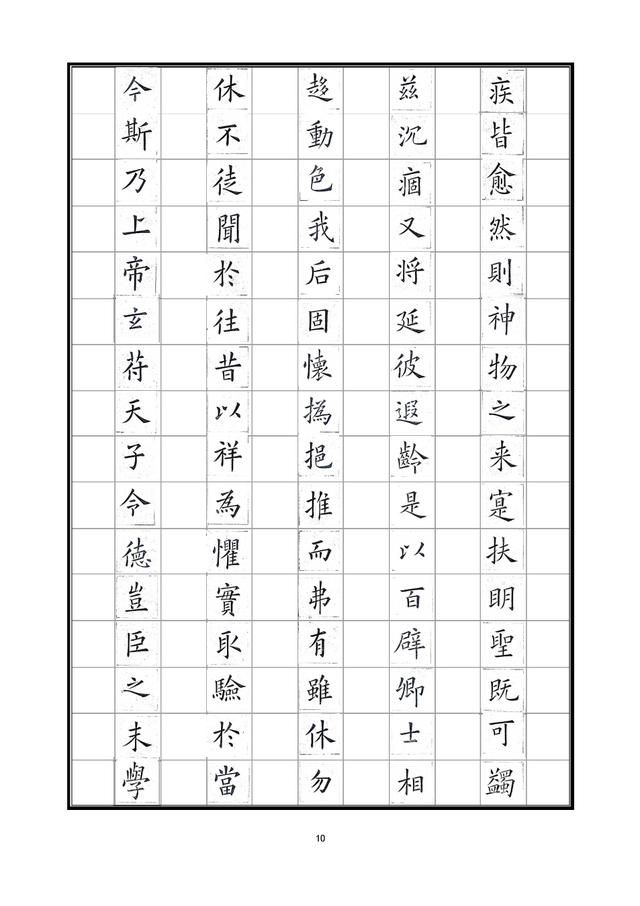 疾皆愈然則神物之来寔扶眀聖既可蠲
兹沉痼又将延彼遐齡是以百辟卿士相
趍動色我后固懷撝挹推而弗有雖休勿
休不徒聞於往昔以祥為懼實取驗於當
今斯乃上帝玄苻天子令德豈臣之末學
10